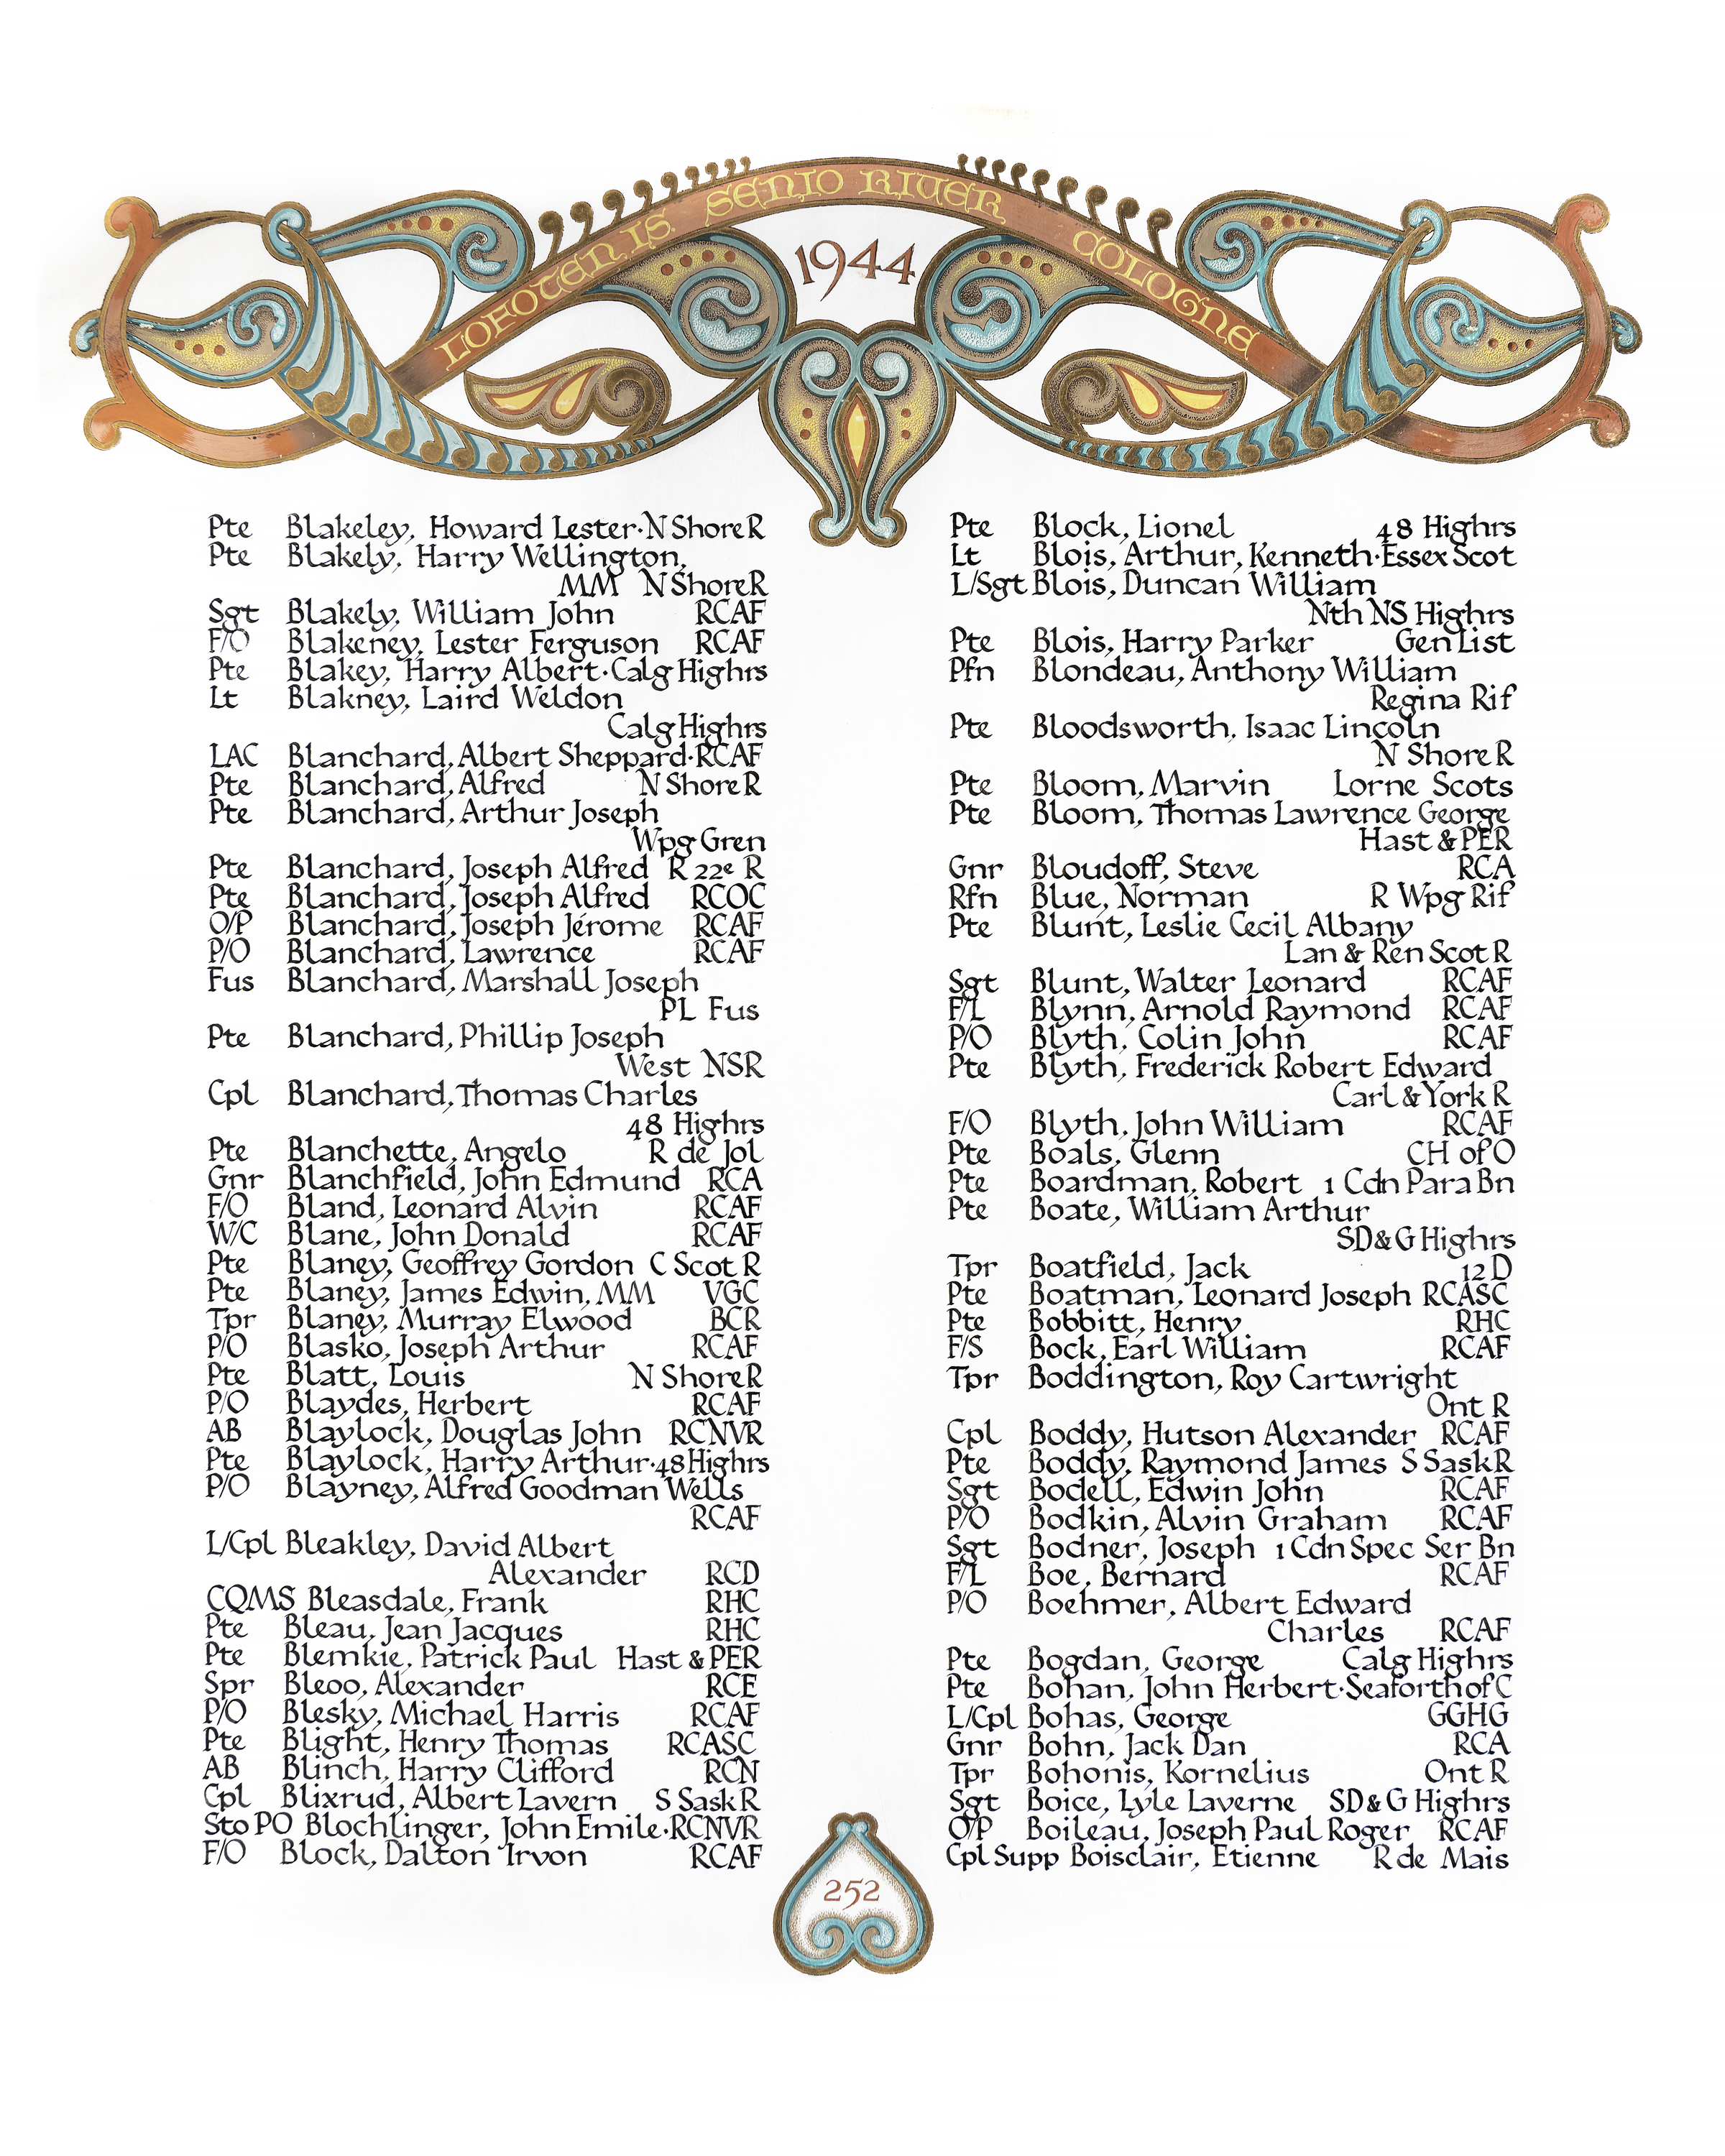 LOFOTEN IS SENIO RIVER COLOGNE
1944
Pte Blakeley, Howard Lester·N Shore R
Pte Blakely, Harry Wellington,
MM N Shore R
Sgt Blakely, William John RCAF
F/O Blakeney, Lester Ferguson RCAF
Pte Blakey, Harry Albert·Calg Highrs
Lt Blakney, Laird Weldon
Calg Highrs
LAC Blanchard, Albert Sheppard·RCAF
Pte Blanchard, Alfred N Shore R
Pte Blanchard, Arthur Joseph
Wpg Gren
Pte Blanchard, Joseph Alfred R 22e R
Pte Blanchard, Joseph Alfred RCOC
O/P Blanchard, Joseph Jérome RCAF
P/O Blanchard, Lawrence RCAF
Fus Blanchard, Marshall Joseph
PL Fus
Pte Blanchard, Phillip Joseph
West NSR
Cpl Blanchard, Thomas Charles
48 Highrs
Pte Blanchette, Angelo R de Jol
Gnr Blanchfield, John Edmund RCA
F/O Bland, Leonard Alvin RCAF
W/C Blane, John Donald RCAF
Pte Blaney, Geoffrey Gordon C Scot R
Pte Blaney, James Edwin, MM VGC
Tpr Blaney, Murray Elwood BCR
P/O Blasko, Joseph Arthur RCAF
Pte Blatt, Louis N Shore R
P/O Blaydes, Herbert RCAF
AB Blaylock, Douglas John RCNVR
Pte Blaylock, Harry Arthur·48 Highrs
P/O Blayney, Alfred Goodman Wells
RCAF
L/Cpl Bleakley, David Albert
Alexander RCD
CQMS Bleasdale, Frank RHC
Pte Bleau, Jean Jacques RHC
Pte Blemkie, Patrick Paul Hast & PER
Spr Bleoo, Alexander RCE
P/O Blesky, Michael Harris RCAF
Pte Blight, Henry Thomas RCASC
AB Blinch, Harry Clifford RCN
Cpl Blixrud, Albert Lavern S Sask R
Sto PO Blochlinger, John Emile·RCNVR
F/O Block, Dalton Irvon RCAF
Pte Block, Lionel 48 Highrs
Lt Blois, Arthur, Kenneth·Essex Scot
L/Sgt Blois, Duncan William
Nth NS Highrs
Pte Blois, Harry Parker Gen List
Pfn Blondeau, Anthony William
Regina Rif
Pte Bloodsworth, Isaac Lincoln
N Shore R
Pte Bloom, Marvin Lorne Scots
Pte Bloom, Thomas Lawrence George
Hast & PER
Gnr Bloudoff, Steve RCA
Rfn Blue, Norman R Wpg Rif
Pte Blunt, Leslie Cecil Albany
Lan & Ren Scot R
Sgt Blunt, Walter Leonard RCAF
F/L Blynn, Arnold Raymond RCAF
P/O Blyth, Colin John RCAF
Pte Blyth, Frederick Robert Edward
Carl & York R
F/O Blyth, John William RCAF
Pte Boals, Glenn CH of O
Pte Boardman, Robert 1 Cdn Para Bn
Pte Boate, William Arthur
SD & G Highrs
Tpr Boatfield, Jack 12 D
Pte Boatman, Leonard Joseph RCASC
Pte Bobbitt, Henry RHC
F/S Bock, Earl William RCAF
Tpr Boddington, Roy Cartwright
Ont R
Cpl Boddy, Hutson Alexander RCAF
Pte Boddy, Raymond James S Sask R
Sgt Bodell, Edwin John RCAF
P/O Bodkin, Alvin Graham RCAF
Sgt Bodner, Joseph 1 Cdn Spec Ser Bn
F/L Boe, Bernard RCAF
P/O Boehmer, Albert Edward
Charles RCAF
Pte Bogdan, George Calg Highrs
Pte Bohan, John Herbert·Seaforth of C
L/Cpl Bohas, George GGHG
Gnr Bohn, Jack Dan RCA
Tpr Bohonis, Kornelius Ont R
Sgt Boice, Lyle Laverne SD & G Highrs
O/P Boileau, Joseph Paul Roger RCAF
Cpl Supp Boisclair, Etienne R de Mais
252